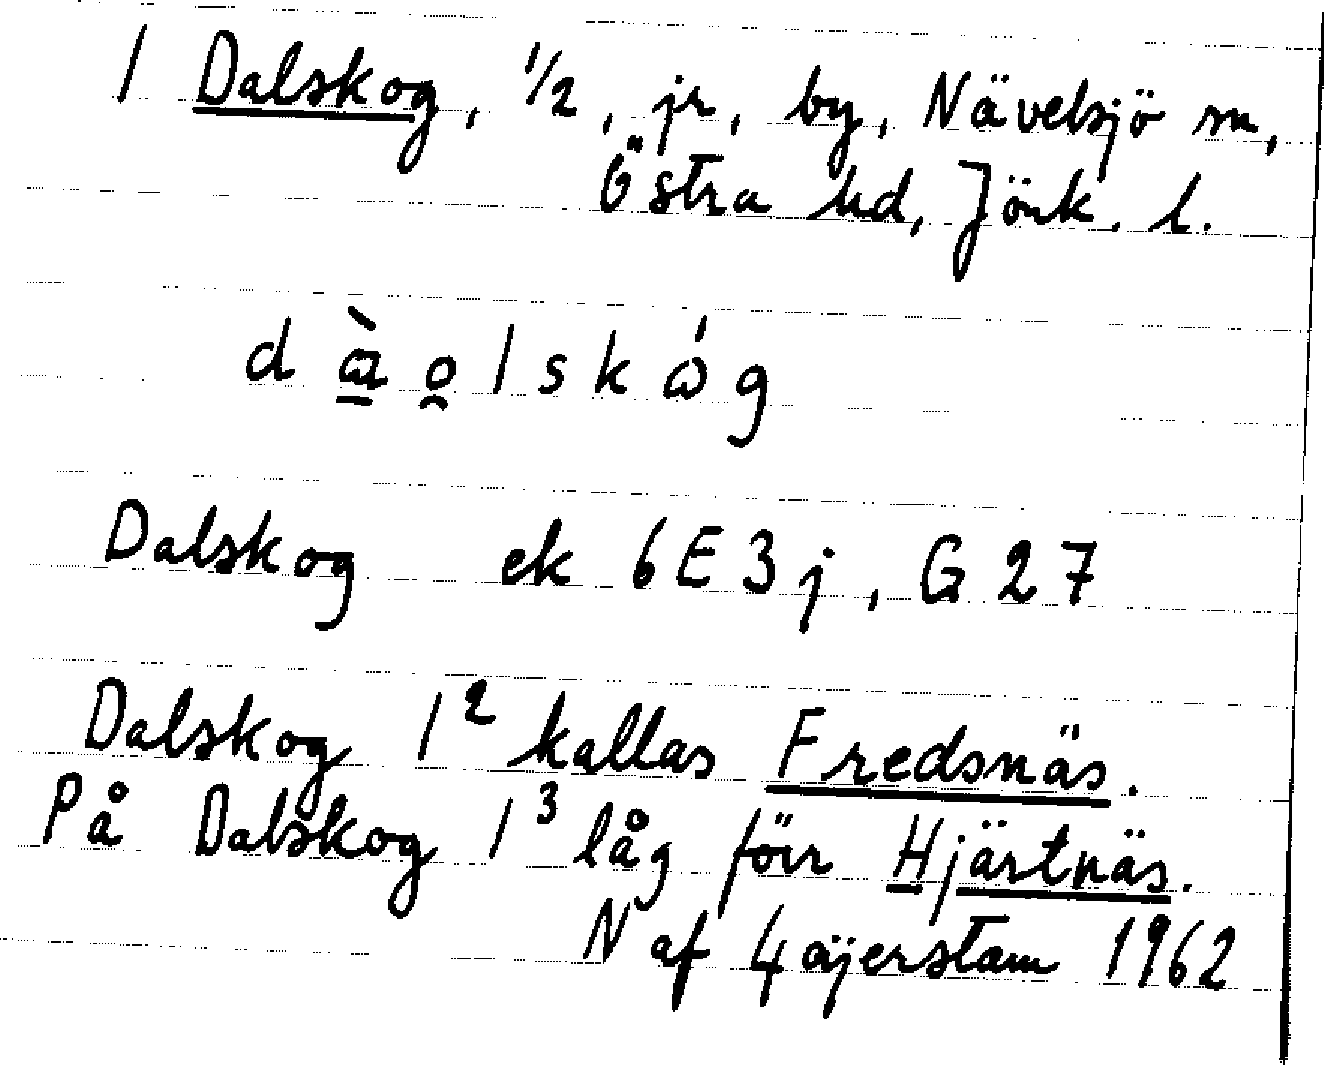 1 Dalskog, 1/2, jr, by, Nävelsjö sn,
Östra hd, Jönk. l.
dào̯lskóg
Dalskog ek 6E3j, G27
Dalskog 1² kallas Fredsnäs.
På Dalskog 1³ låg förr Hjärtnäs.
N af Geijerstam 1962